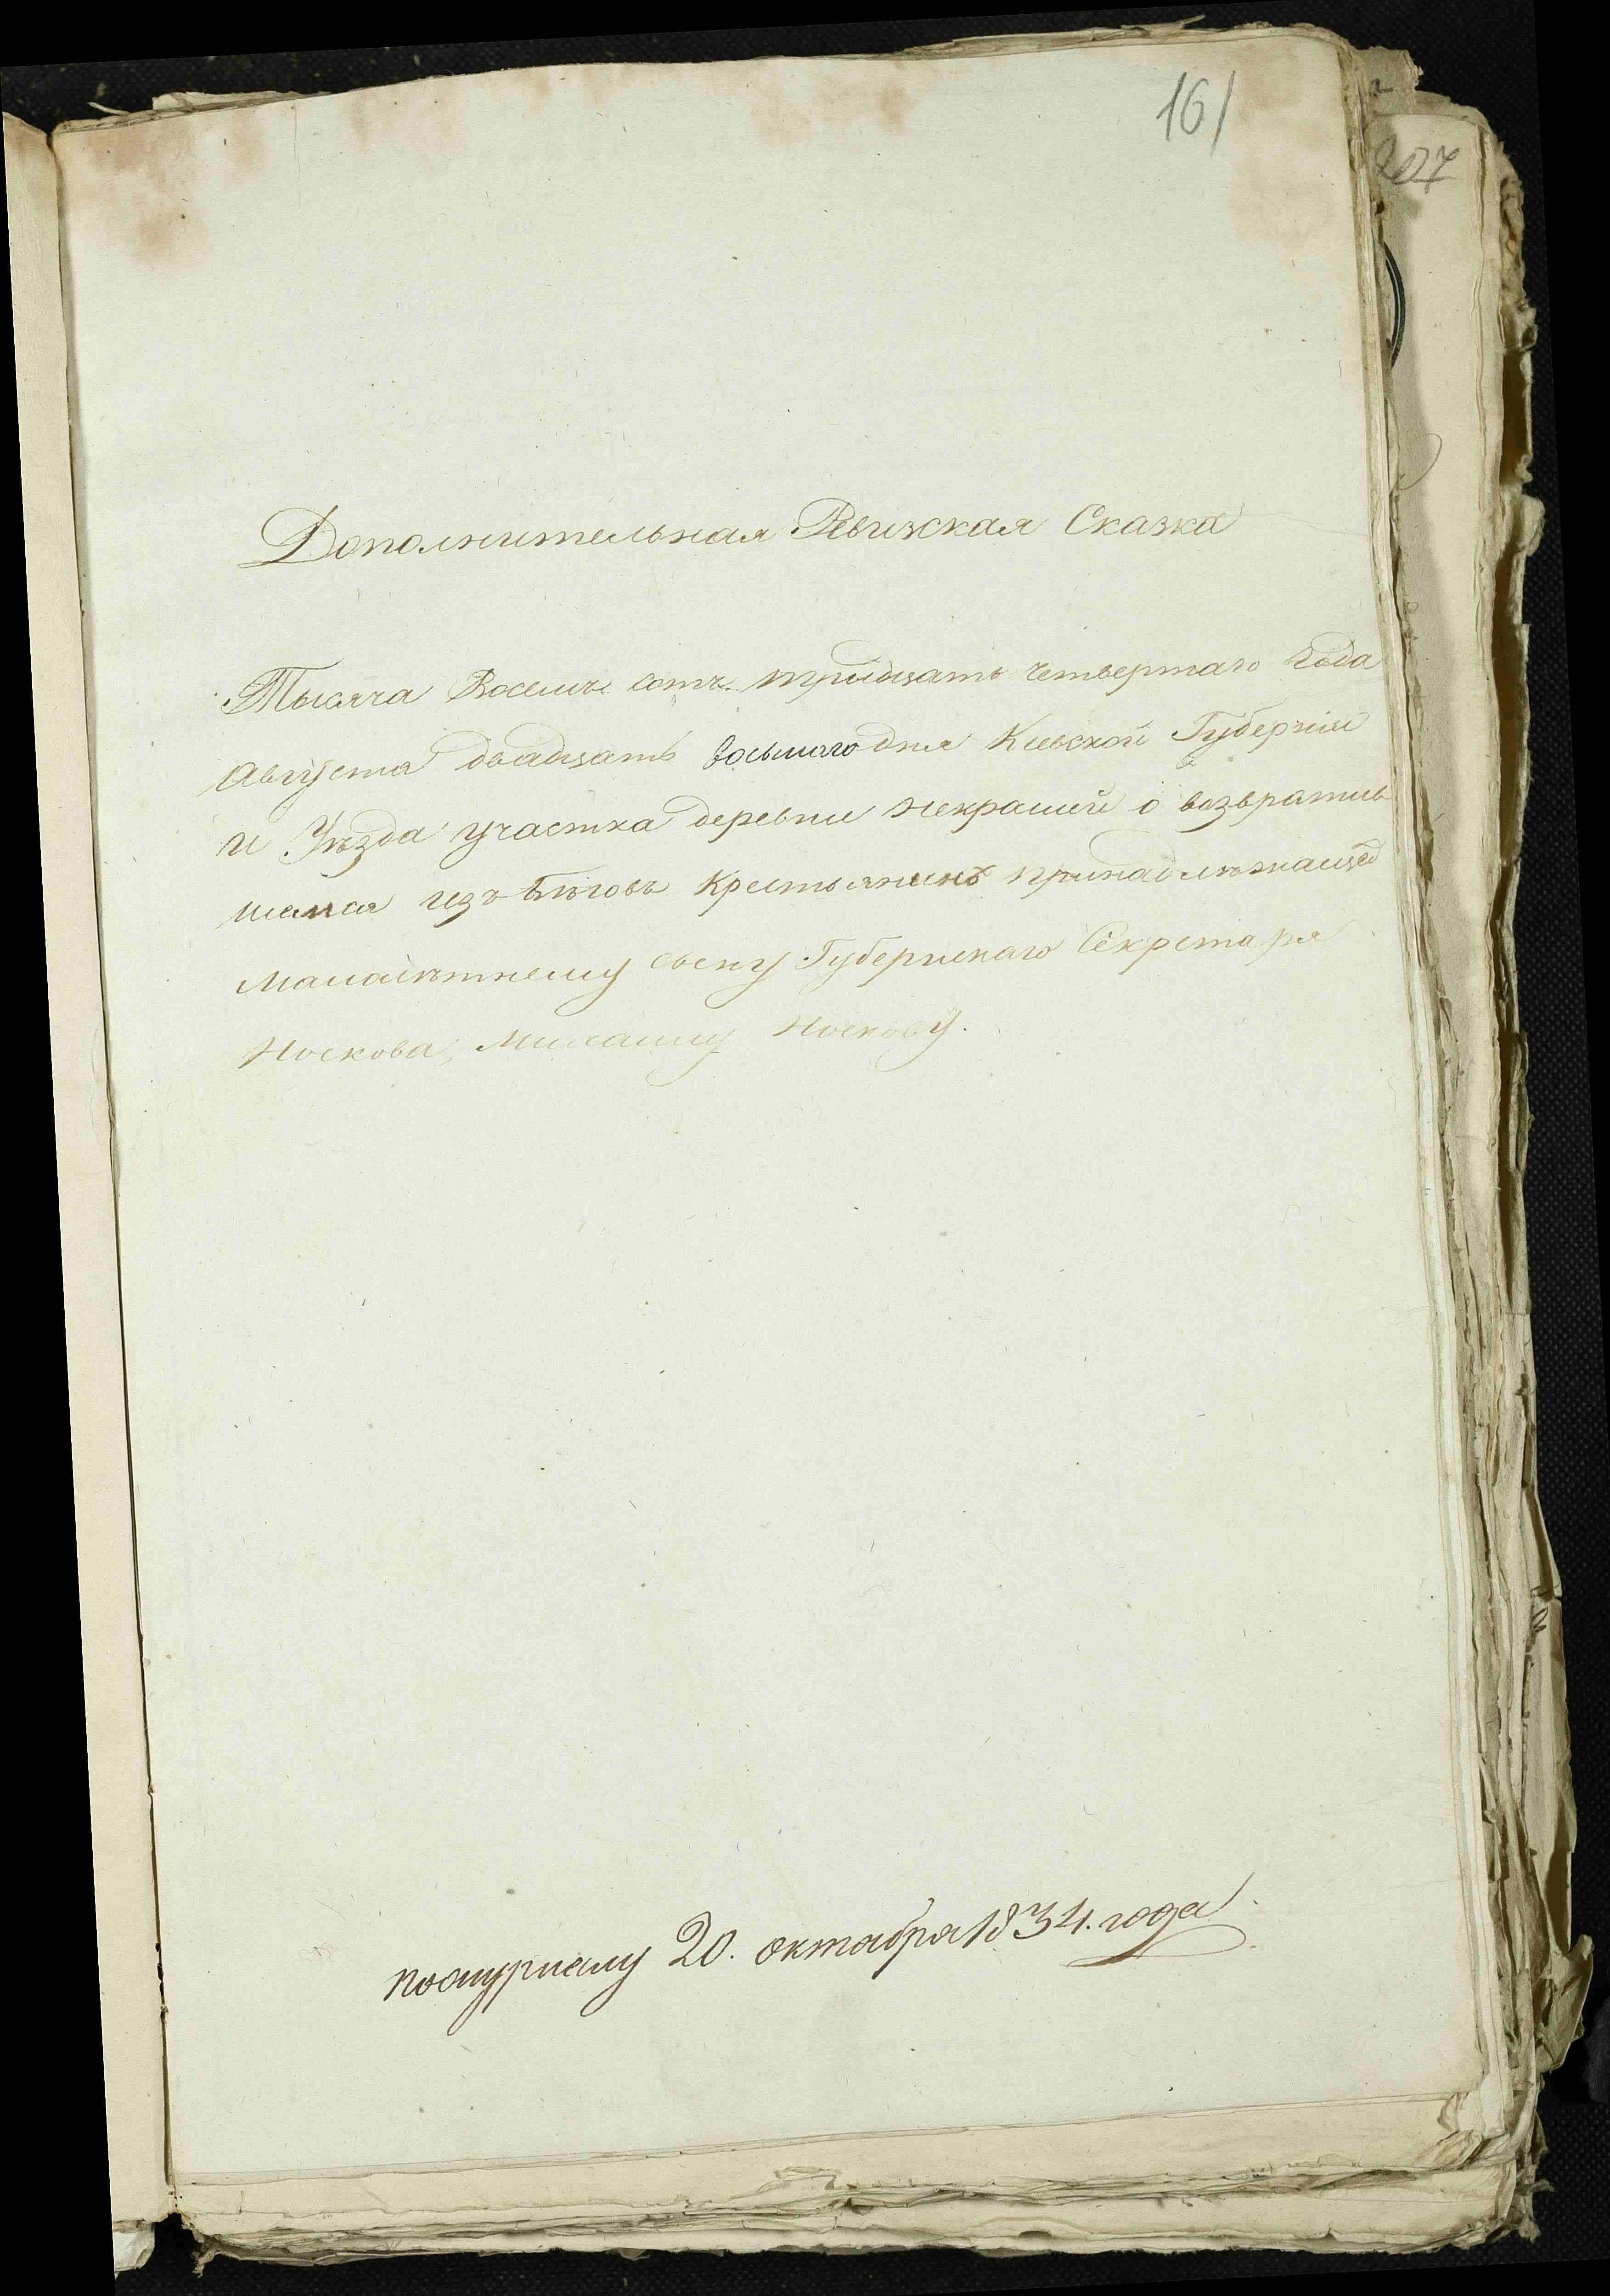 161
207
Дополнительная Ревизская Сказка
Тысяча Восемъ сотъ тридцать четвертаго Года
Августа двадцать восьмаго дня Кіевской Губерніи
и Уѣзда участка деревни Некрашей о возвратив
шемся изъ Бѣговъ Крестьянинѣ принадлѣжащед
Малалѣтнему сыну Губернскаго Секретаря
Носкова, Михаилу Носкову.
Пожурналу 20. октября 1834. года